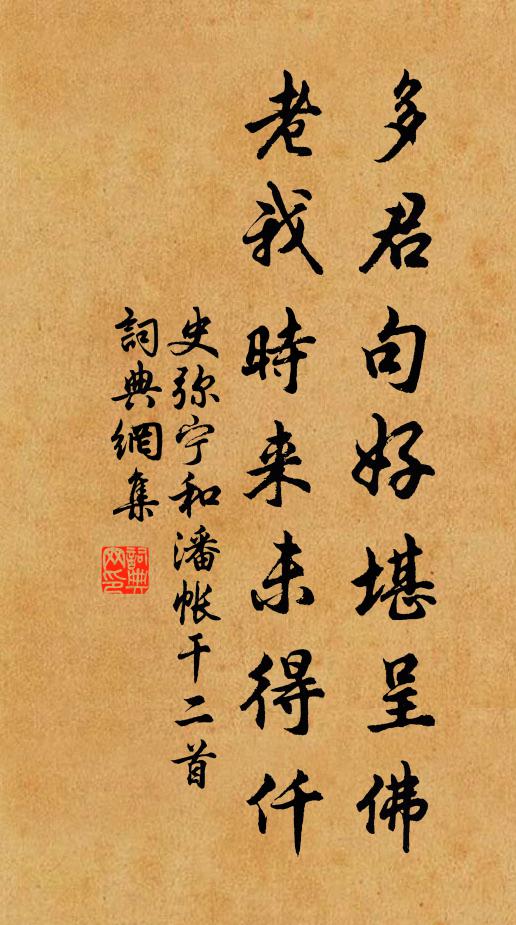 多君句好堪呈佛
老我時来未得仟
史弥宁和潘帐干二首
詞典網集
詞典網印